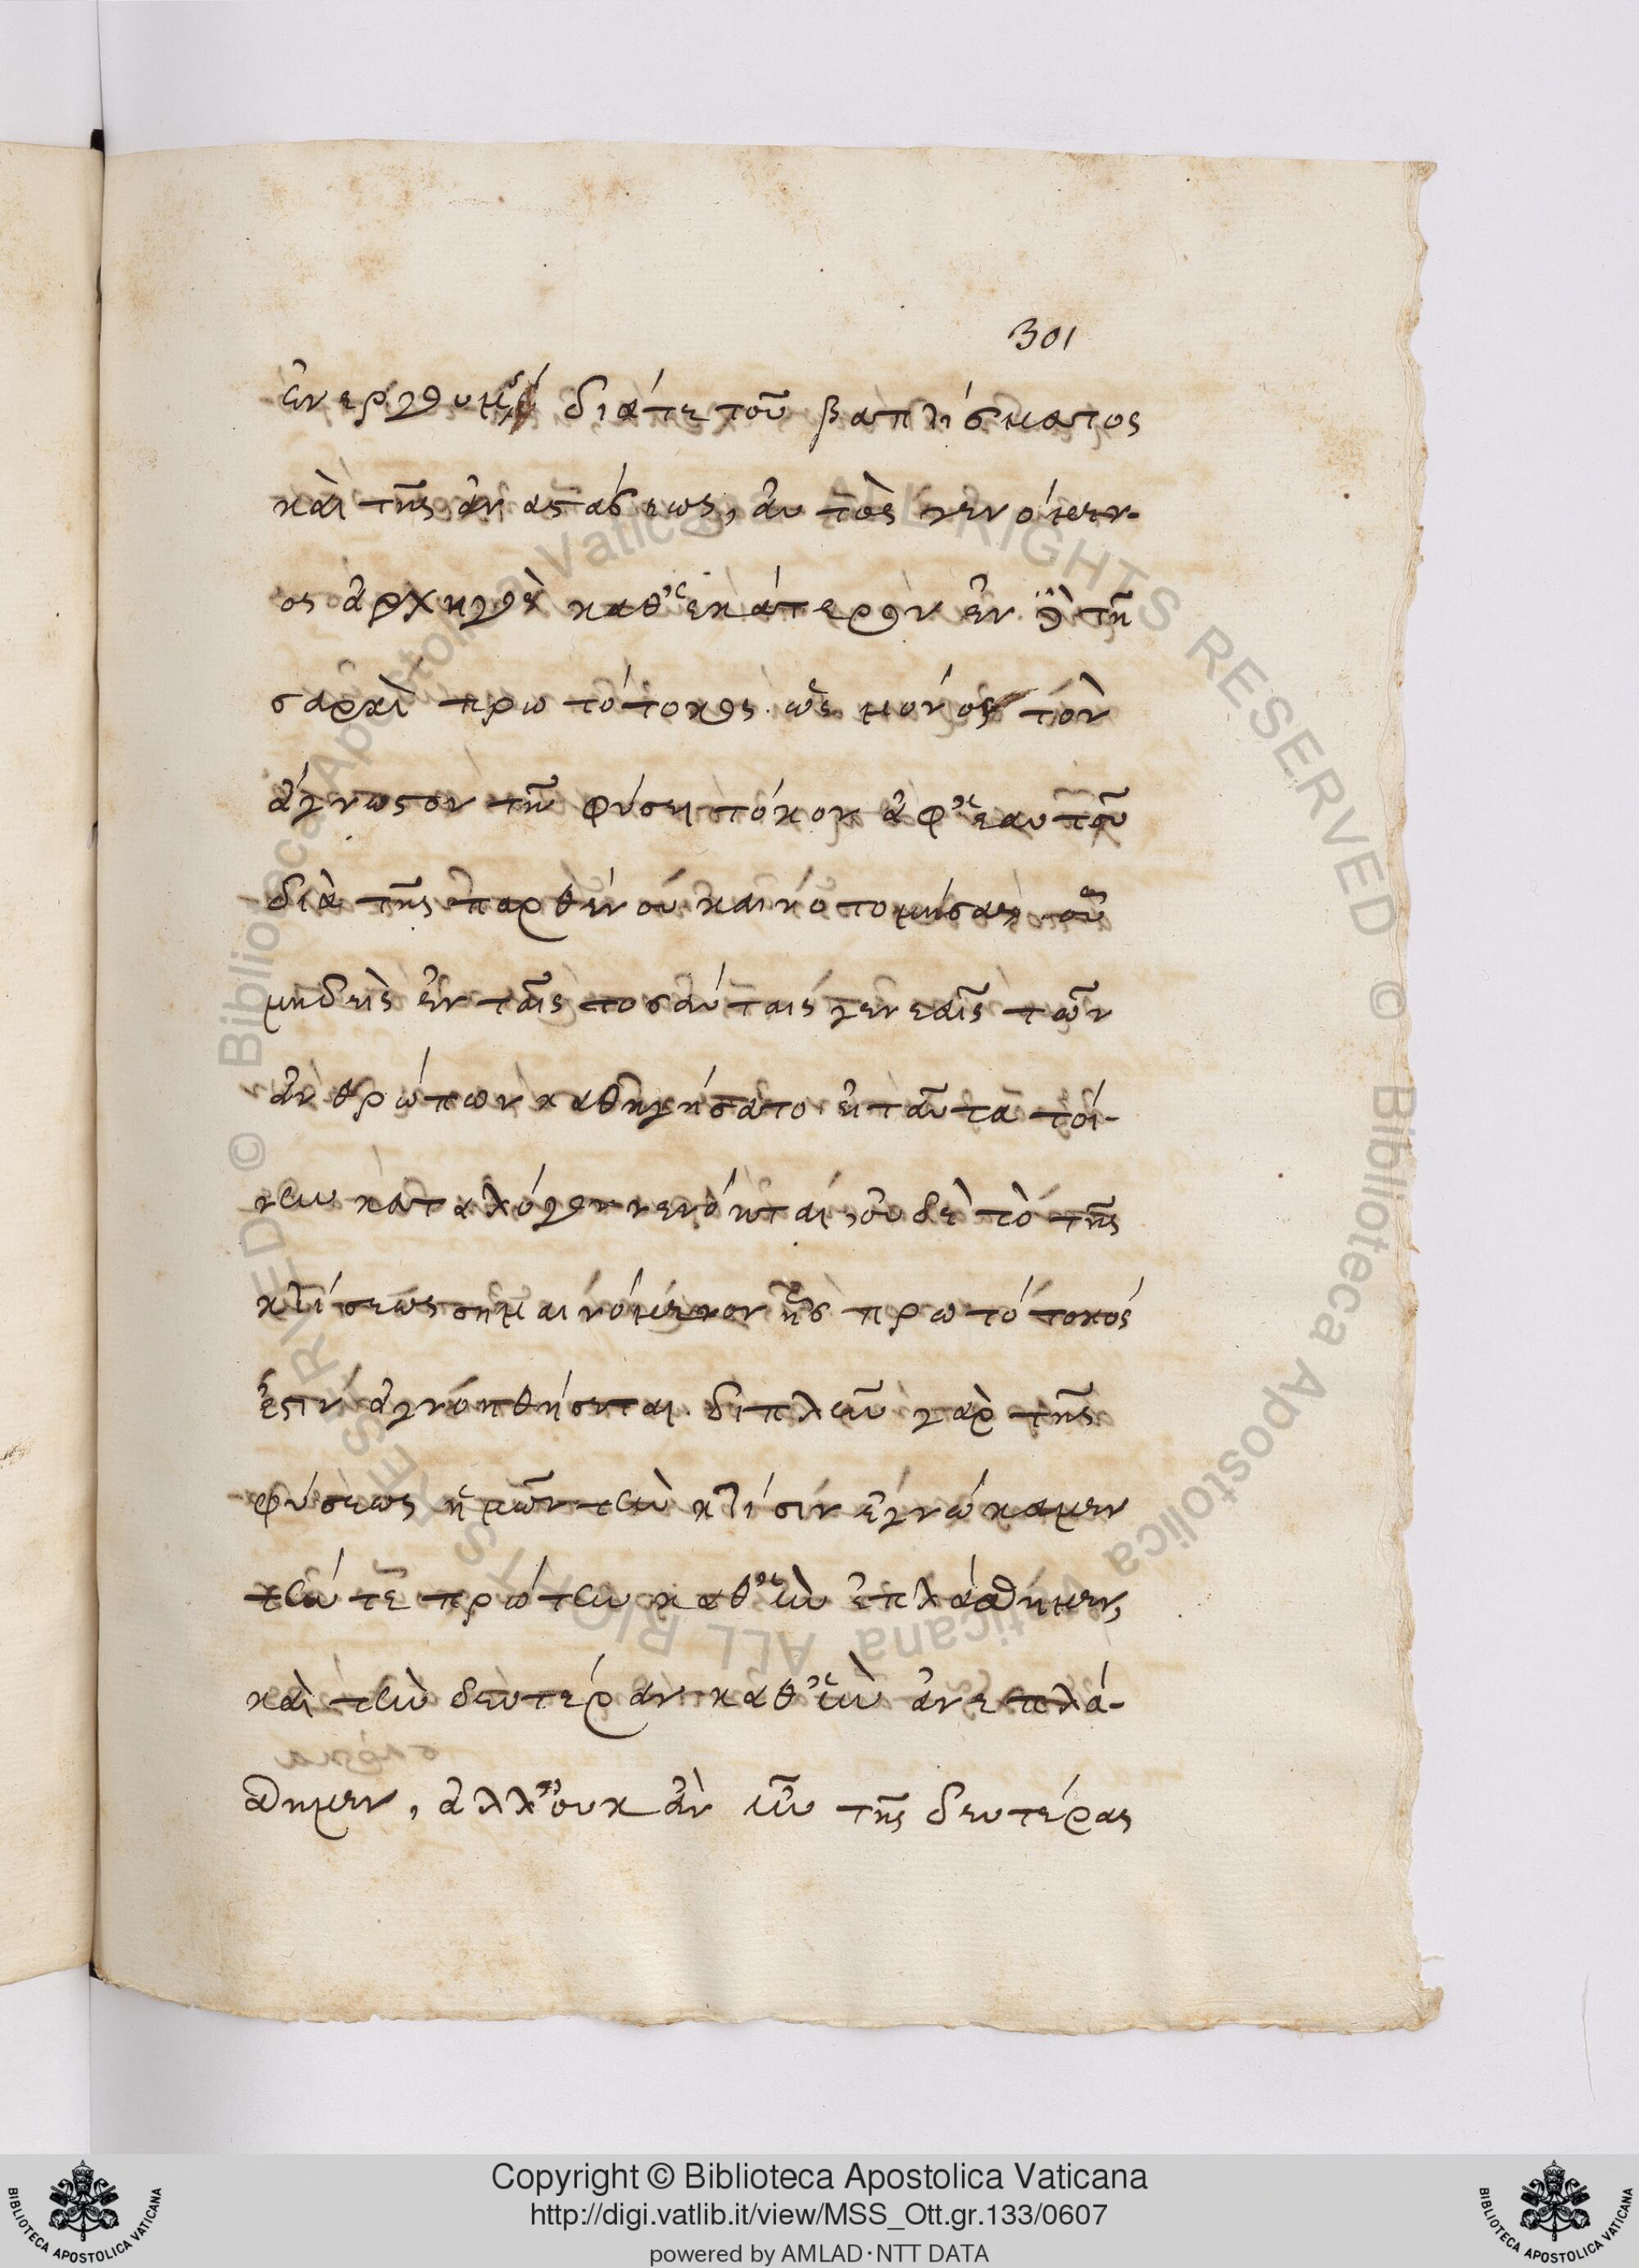 301
ἐνεργουμένου διάτε τοῦ βαπτίσματος
καὶ τῆς ἀναστάσεως, αὐτὸς γενόμεν-
ος ἀρχηγὸς καθ' ἑκάτερον ἐν δὲ τῇ
σαρκὶ πρωτότοκος. ὡς μόνος τὸν
ἄγνωστον τῇ φύσει τόκον ἀφ' ἑαυτοῦ
διὰ τῆς παρθένου καινοτομήσας, οὗ
μηδεὶς ἐν ταῖς τοσαύταις γενεαῖς τῶν
ἀνθρώπων καθηγήσατο. εἰ ταῦτα τοί-
νυν κατα λόγον νενόηται, οὐδὲ τὸ τῆς
κτίσεως σημαινόμενον ἧς πρωτότοκός
ἐστιν ἀγνοηθήσεται. διπλῆν γὰρ τῆς
φύσεως ἡμῶν τὴν κτίσιν ἐγνώκαμεν
τήν τε πρώτην καθ' ἣν ἐπλάσθημεν,
καὶ τὴν δευτέραν καθ' ἣν ἀνεπλά-
σθημεν, ἀλλ' οὐκ ἂν ἦν τῆς δευτέρας
Copyright © Biblioteca Apostolica Vaticana
http://digi.vatlib.it/view/MSS_Ott.gr.133/0607
powered by AMLAD·NTT DATA
BIBLIOTECA APOSTOLICA VATICANA
BIBLIOTECA APOSTOLICA VATICANA